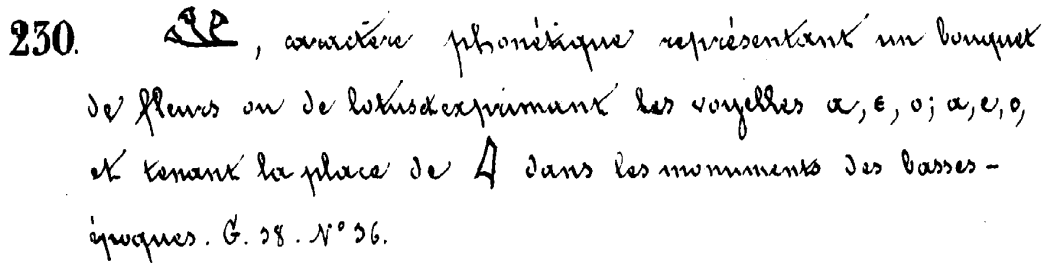 230. 𓇬, caractère phonétique représentant un bouquet
de fleurs ou de lotus & exprimant les voyelles ⲁ, ⲉ, ⲟ; a, e, o,
et tenant la place de 𓇋 dans les monuments des basses-
époques. G. 38. N° 36.